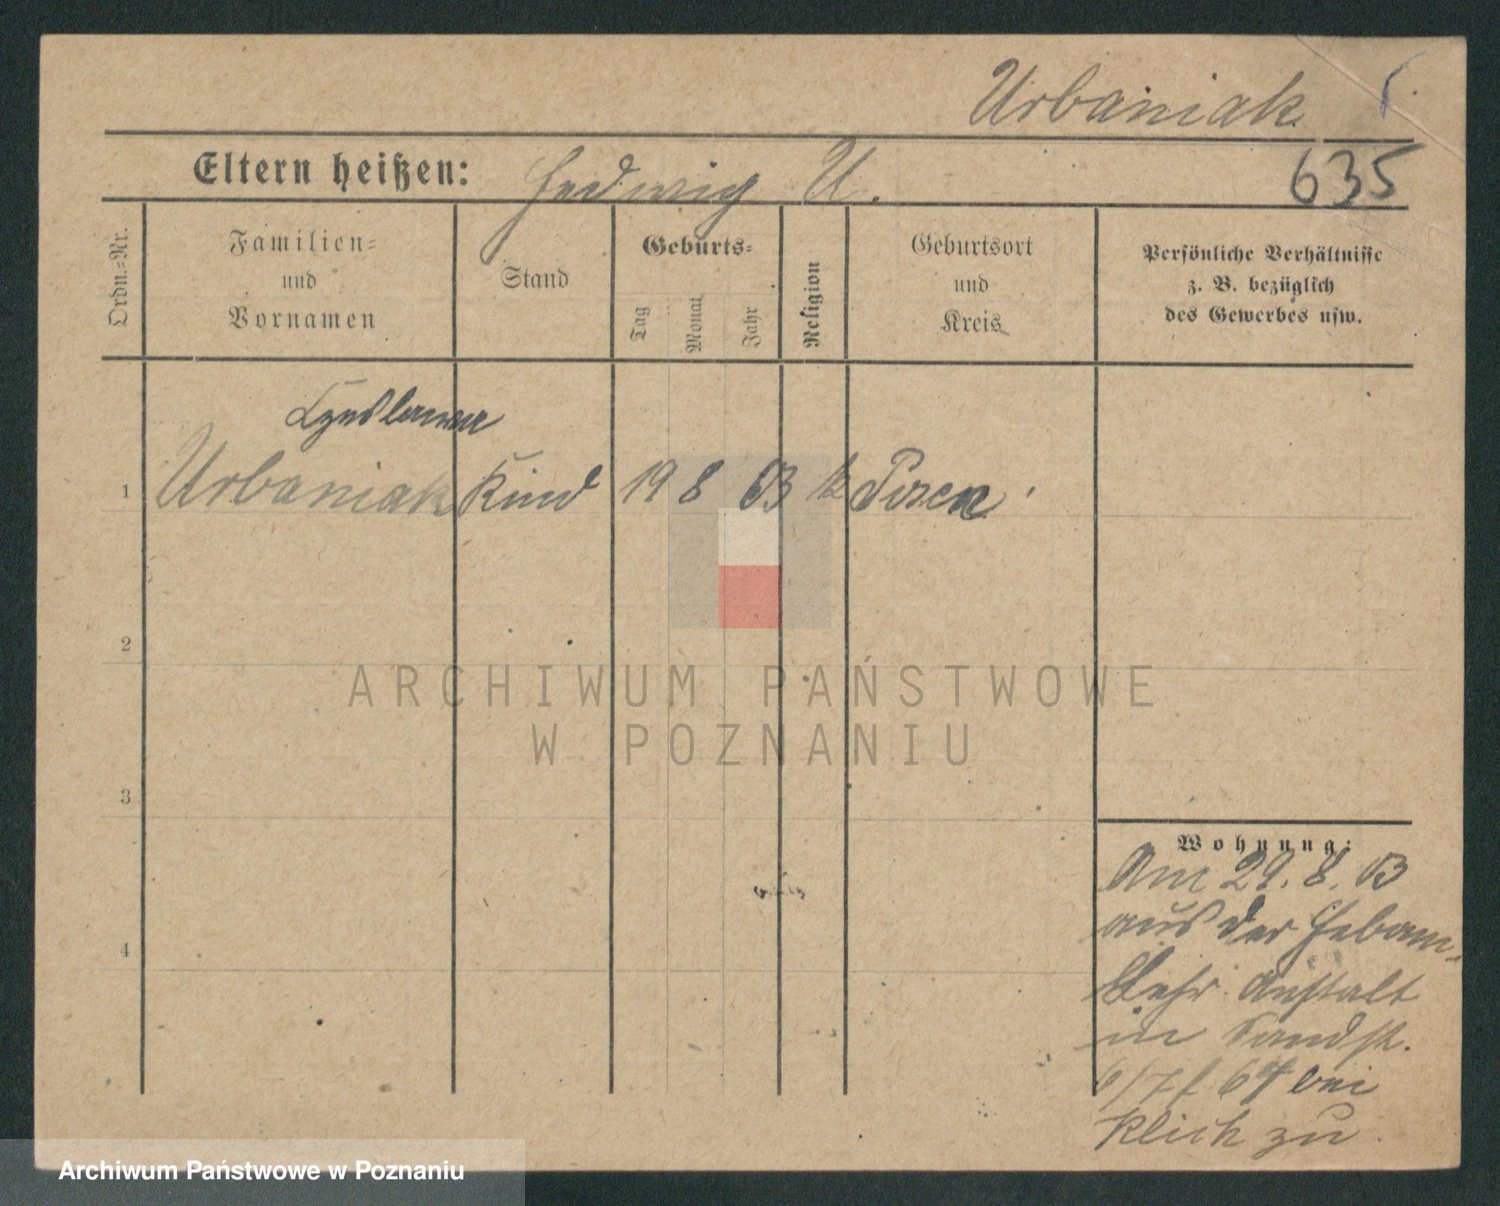 Urbaniak
635
Eltern heißen: Hedwig U.
Ordn.-Nr.
Familien-
und
Vornamen
Stand
Geburts-
Tag
Monat
Jahr
Religion
Geburtsort
und
Kreis
Persönliche Verhältnisse
z. B. bezüglich
des Gewerbes usw.
1 Urbaniak Kind 19 8 03 k Posen
2
3
4
Wohnung:
Am 29. 8. 03
aus der Hebam-
Lehr Anstalt
in Sandstr.
bei
Klich zu
ARCHIWUM PAŃSTWOWE
W POZNANIU
Archiwum Państwowe w Poznaniu